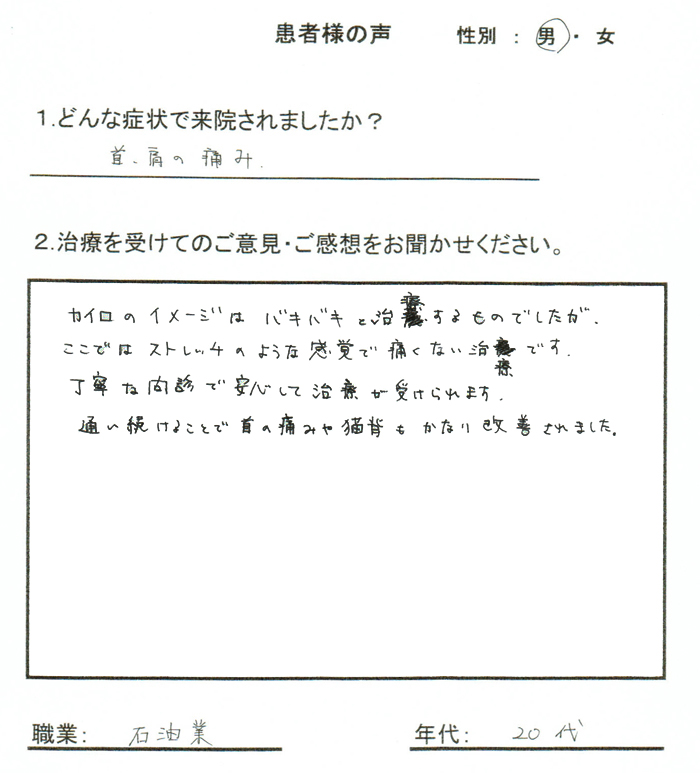 患者様の声 性別 : 男・女
1.どんな症状で来院されましたか?
首、肩の痛み.
2.治療を受けてのご意見・ご感想をお聞かせください。
カイロのイメージは バキバキと治療するものでしたが、
ここでは ストレッチのような感覚で痛くない治療です.
丁寧な問診で安心して治療が受けられます.
通い続けることで首の痛みや猫背もかなり改善されました。
職業: 石油業 年代: 20代